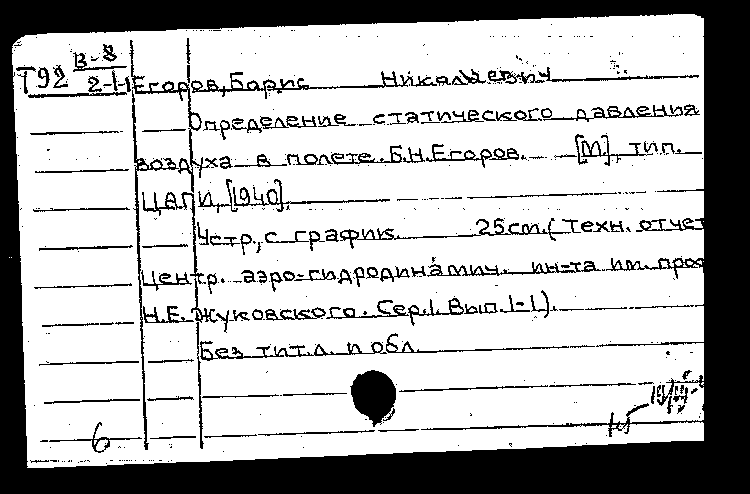 Т92 В-8
2-1-1 Егоров, Барис Николаевич
Определение статического давления
воздуха в полете. Б.Н.Егоров. [М], тип.
ЦАГИ, [1940].
4стр., с график. 25см. (Техн. отчет
Центр. аэро-гидродинамич. ин-та им. проф
Н.Е. Жуковского. Сер.1. Вып.1-1).
Без тит.л. и обл.
6